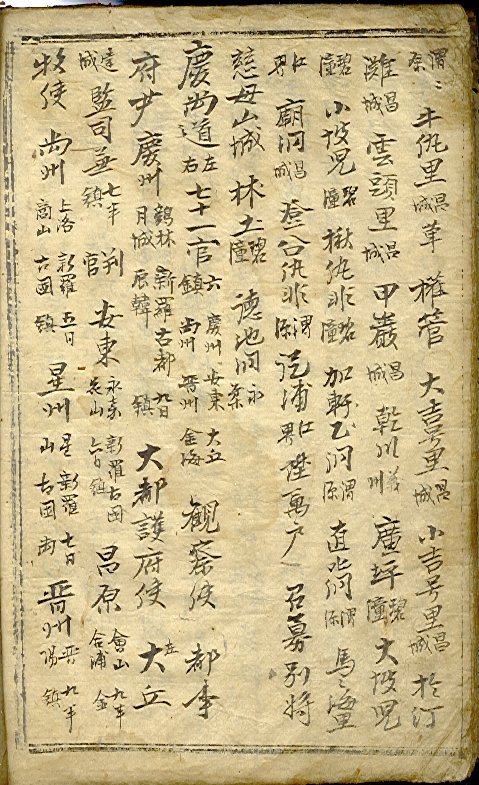 渭原 牛仇里 昌城 革 權管 大吉号里 昌城 小吉号里 昌城 於汀
滩 昌城 雲頭里 昌城 甲巖 昌城 乾川 義州 廣坪 碧潼 大坡児
碧潼 小坡児 碧潼 楸仇非 碧潼 加軒乙洞 渭原 直北洞 渭原 馬海
江界 廟洞 昌城 登公仇非 渭原 從浦 江界 陞萬戶 召募別將
慈母山城 林土 碧潼 德池洞 永柔
慶尚道 左右 七十一官 六鎮 慶州 安東 大丘 尚州 晉州 金海 觀察使 都事
府尹 慶州 鷄林 月城 新羅古都 辰韓 九日 鎮 大都護府使 左 大丘
達城 監司兼 七半 鎮 判官 安東 永嘉 花山 新羅古国 六日 鎮 昌原 會山 合浦 九半 金
牧使 尚州 上洛 商山 新羅 古國 五日 鎮 星州 星山 新羅 古国 七日 尚 晉州 晉陽 九半 鎮